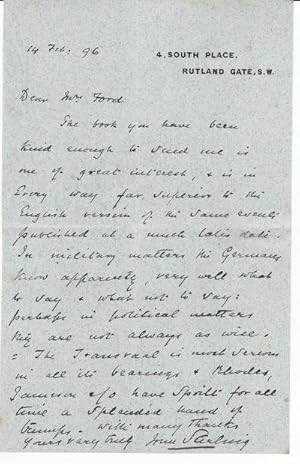 14 Feb. 96
4, SOUTH PLACE,
RUTLAND GATE, S.W.
Dear Mrs Ford
The book you have been
kind enough to send me is
one of great interest, & is in
every way far superior to the
English version of the same events
published at a much later date.
In military matters the Germans
know apparently, very well what
to say & what not to say:
perhaps in political matters
they are not always as wise.
= The Transvaal is most serious
in all its bearings & Rhodes,
Jameson &/o have spoilt for all
time a splendid hand of
trumps. With many thanks
Yours very truly John Sterling